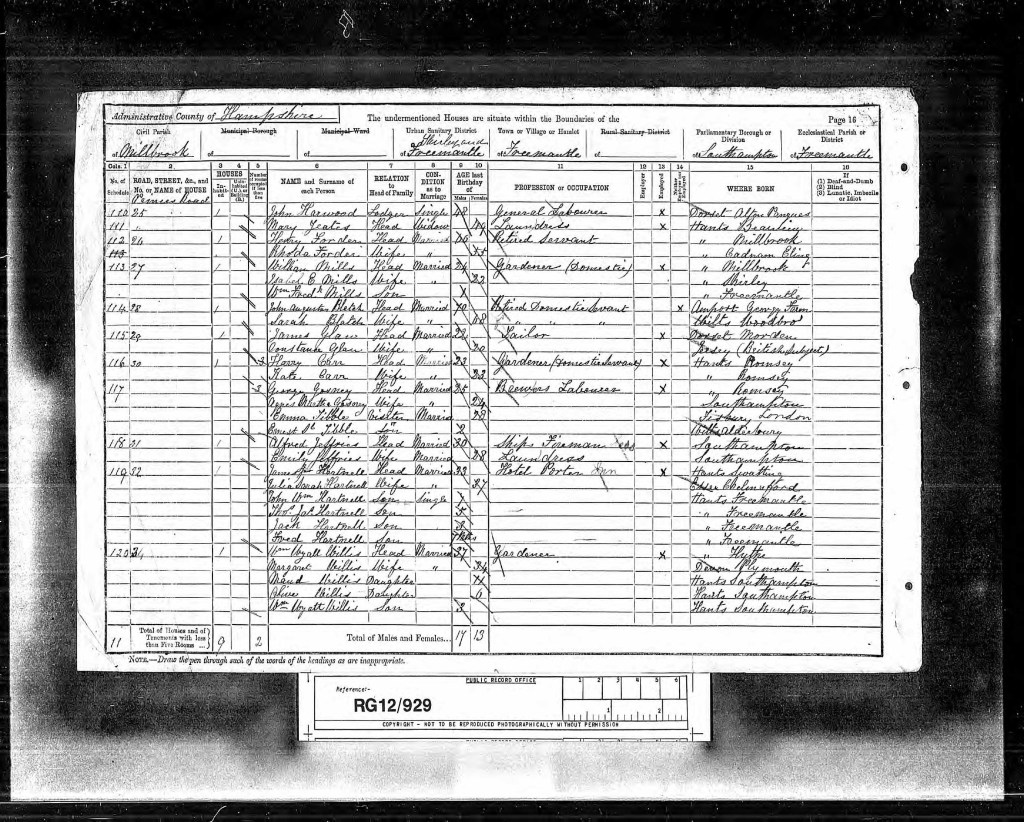 Administrative County of Hampshire
The undermentioned Houses are situate within the Boundaries of the
Page 16
Civil Parish
of Millbrook
Municipal Borough
of
Municipal Ward
of
Urban Sanitary District
of Shirley and Freemantle
Town or Village or Hamlet
of Freemantle
Rural Sanitary District
of
Parliamentary Borough or Division
of Southampton
Ecclesiastical Parish or District
of Freemantle
Cols. 1 2 3 4 5 6 7 8 9 10 11 12 13 14 15 16
No. of Schedule
ROAD, STREET, &c., and No. or NAME of HOUSE
HOUSES
NAME and Surname of each Person
RELATION to Head of Family
CONDITION as to Marriage
AGE last Birthday of
Males Females
PROFESSION or OCCUPATION
Employer
Employed
WHERE BORN
If (1) Deaf-and-Dumb (2) Blind (3) Lunatic, Imbecile or Idiot
Road
110 25 1 John Harwood Lodger Single 48 General Labourer x Dorset
111 1 Mary Yeates Head Widow Laundress x Hants Beaulieu
112 26 1 Henry Forder Head Married Retired Servant " Millbrook
113 Rhoda Forder Wife " " Cadnam Eling
113 27 1 William Mills Head Married 24 Gardener (Domestic) x " Millbrook
Isabel E Mills Wife " 22 " Shirley
Wm Fredk Mills Son " Freemantle
114 28 1 John Augustus Head Married 70 Retired Domestic Servant x Amport
Sarah Wife " 68 " " " Wilts
115 29 1 James Head Married 22 Tailor x Dorset Morden
Constance Wife " 20 Jersey (British Subject)
116 30 1 3 Harry Carr Head Married 23 Gardener (Domestic Servant) x Hants Romsey
Kate Carr Wife " 22 " Romsey
117 3 George Head Married 25 Brewers Labourer x " Romsey
Agnes Wife " 24 Southampton
Emma Tibble Visitor Married 28 London
Ernest Tibble Son 2 Wilts Alderbury
118 31 1 Alfred Jeffries Head Married 30 Ships Fireman x Southampton
Emily Jeffries Wife Married 28 Laundress Southampton
119 32 1 James Hartnell Head Married 33 Hotel Porter Inn x Hants
Julia Sarah Hartnell Wife " 37 Essex Chelmsford
John Wm Hartnell Son Single 7 Hants Freemantle
Thos Jas Hartnell Son 5 " Freemantle
Jack Hartnell Son 3 " Freemantle
Fred Hartnell Son 7 Mths " Freemantle
120 34 1 Wm Wyatt Willis Head Married 37 Gardener x " Hythe
Margaret Willis Wife " 34 Devon Plymouth
Maud Willis Daughter 11 Hants Southampton
Olive Willis Daughter 6 Hants Southampton
Wm Wyatt Willis Son 3 Hants Southampton
11 Total of Houses and of Tenements with less than Five Rooms ... 9 2 Total of Males and Females... 17 13
NOTE.—Draw the pen through such of the words of the headings as are inappropriate.
PUBLIC RECORD OFFICE
Reference:-
RG12/929
1 2 3 4 5 6
1 2
COPYRIGHT - NOT TO BE REPRODUCED PHOTOGRAPHICALLY WITHOUT PERMISSION